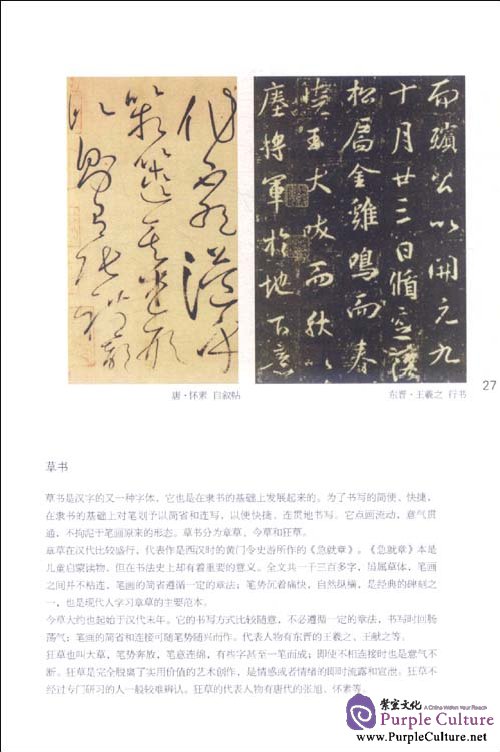 而殡
以開元九
十月廿三日
松
金雞鳴而春
玉犬吠而秋
將軍於
地
唐·怀素 自叙帖
东晋·王羲之 行书
27
草书
草书是汉字的又一种字体，它也是在隶书的基础上发展起来的。为了书写的简便、快捷，
在隶书的基础上对笔划予以简省和连写，以便快捷、连贯地书写。它点画流动，意气贯
通，不拘泥于笔画原来的形态。草书分为章草、今草和狂草。
章草在汉代比较盛行，代表作是西汉时的黄门令史游所作的《急就章》。《急就章》本是
儿童启蒙读物，但在书法史上却有着重要的意义。全文共一千三百多字，虽属草体，笔画
之间并不粘连，笔画的简省遵循一定的章法；笔势沉着痛快，自然纵横，是经典的碑刻之
一，也是现代人学习章草的主要范本。
今草大约也起始于汉代末年。它的书写方式比较随意，不必遵循一定的章法，书写时回肠
荡气；笔画的简省和连接可随笔势随兴而作。代表人物有东晋的王羲之、王献之等。
狂草也叫大草，笔势奔放，笔意连绵，有些字甚至一笔而成；即使不相连接时也是意气不
断。狂草是完全脱离了实用价值的艺术创作，是情感或者情绪的即时流露和宣泄。狂草不
经过专门研习的人一般较难辨认。狂草的代表人物有唐代的张旭、怀素等。
紫宝文化 A China Within Your Reach
Purple Culture
www.PurpleCulture.net